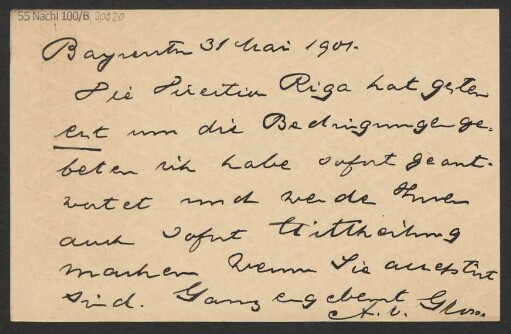 55 Nachl 100/B
Bayreuth 31 Mai 1901.
Die Direction Riga hat gestern
erst um die Bedingungen ge-
beten ich habe sofort geant-
wortet und werde Ihnen
auch sofort Mittheilung
machen wenn Sie
sind. Ganz ergebenst
A. v. Gross.